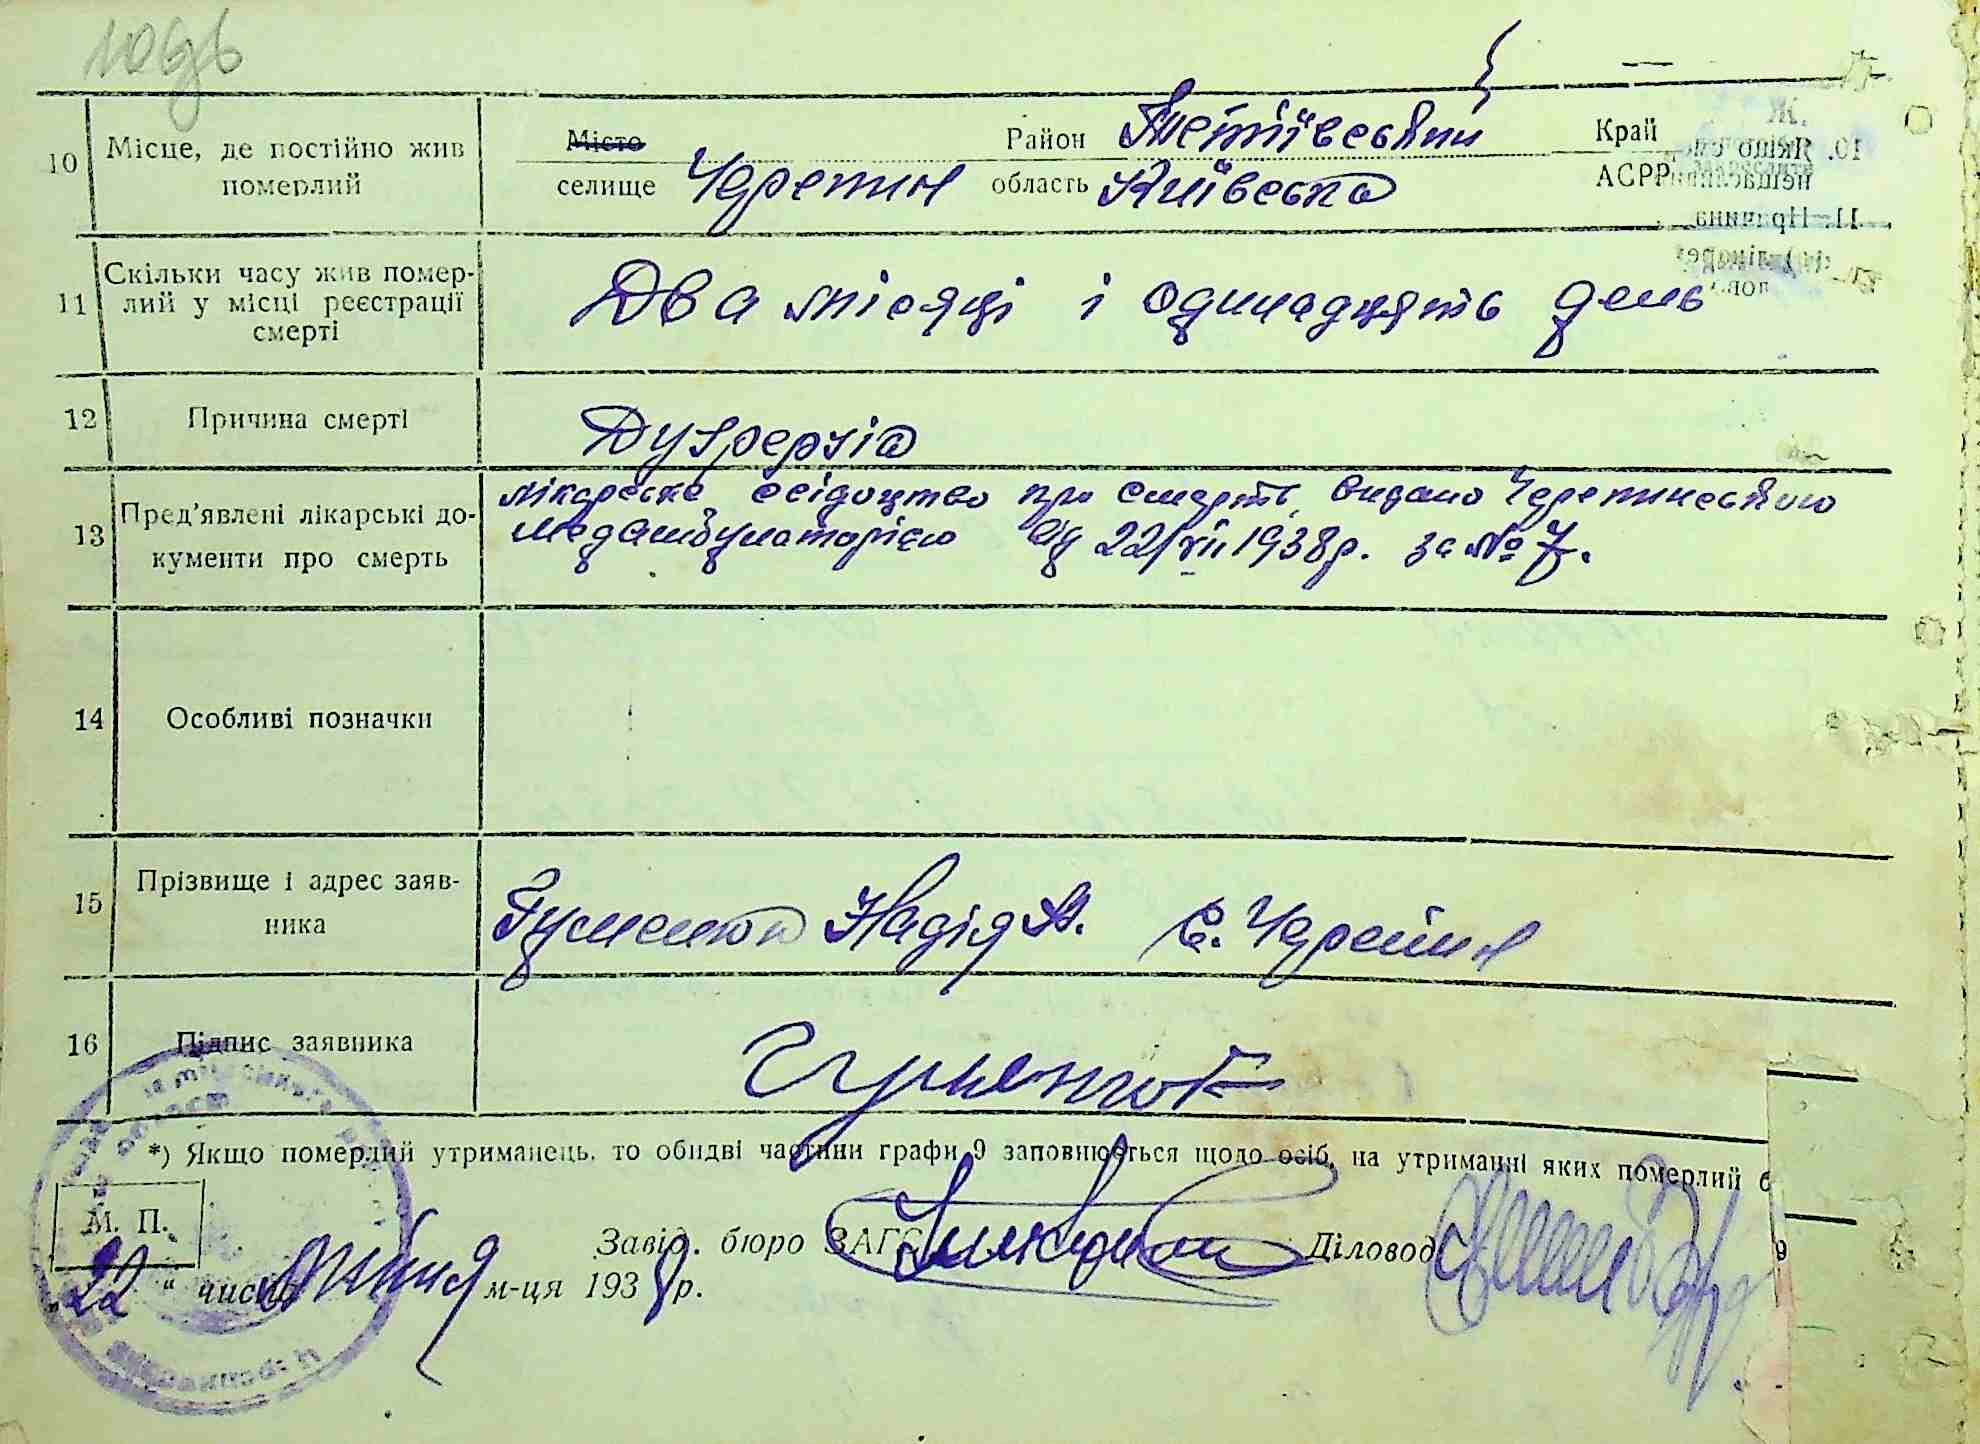 10 Місце, де постійно жив померлий
Місто
Район Тетіївський
Край
селище Черепин область Київська
АСРР
11 Скільки часу жив помер-
лий у місці реєстрації
смерті
Два місяці і одинадцять день
12 Причина смерті
13 Пред’явлені лікарські до-
кументи про смерть
лікарське свідоцтво про смерть, видано Черепинською
Медамбулаторією від 22/VII 1938р. за №7.
14 Особливі позначки
15 Прізвище і адрес заяв-
ника
Гуменюк Надія с. Черепин
16 Підпис заявника
Гуменюк
*) Якщо померлий утриманець, то обидві частини графи 9 заповнюється щодо осіб, на утриманні яких померлий б
М. П.
Завід. бюро ЗАГС
Діловод
„22“ число липня м-ця 1938 р.